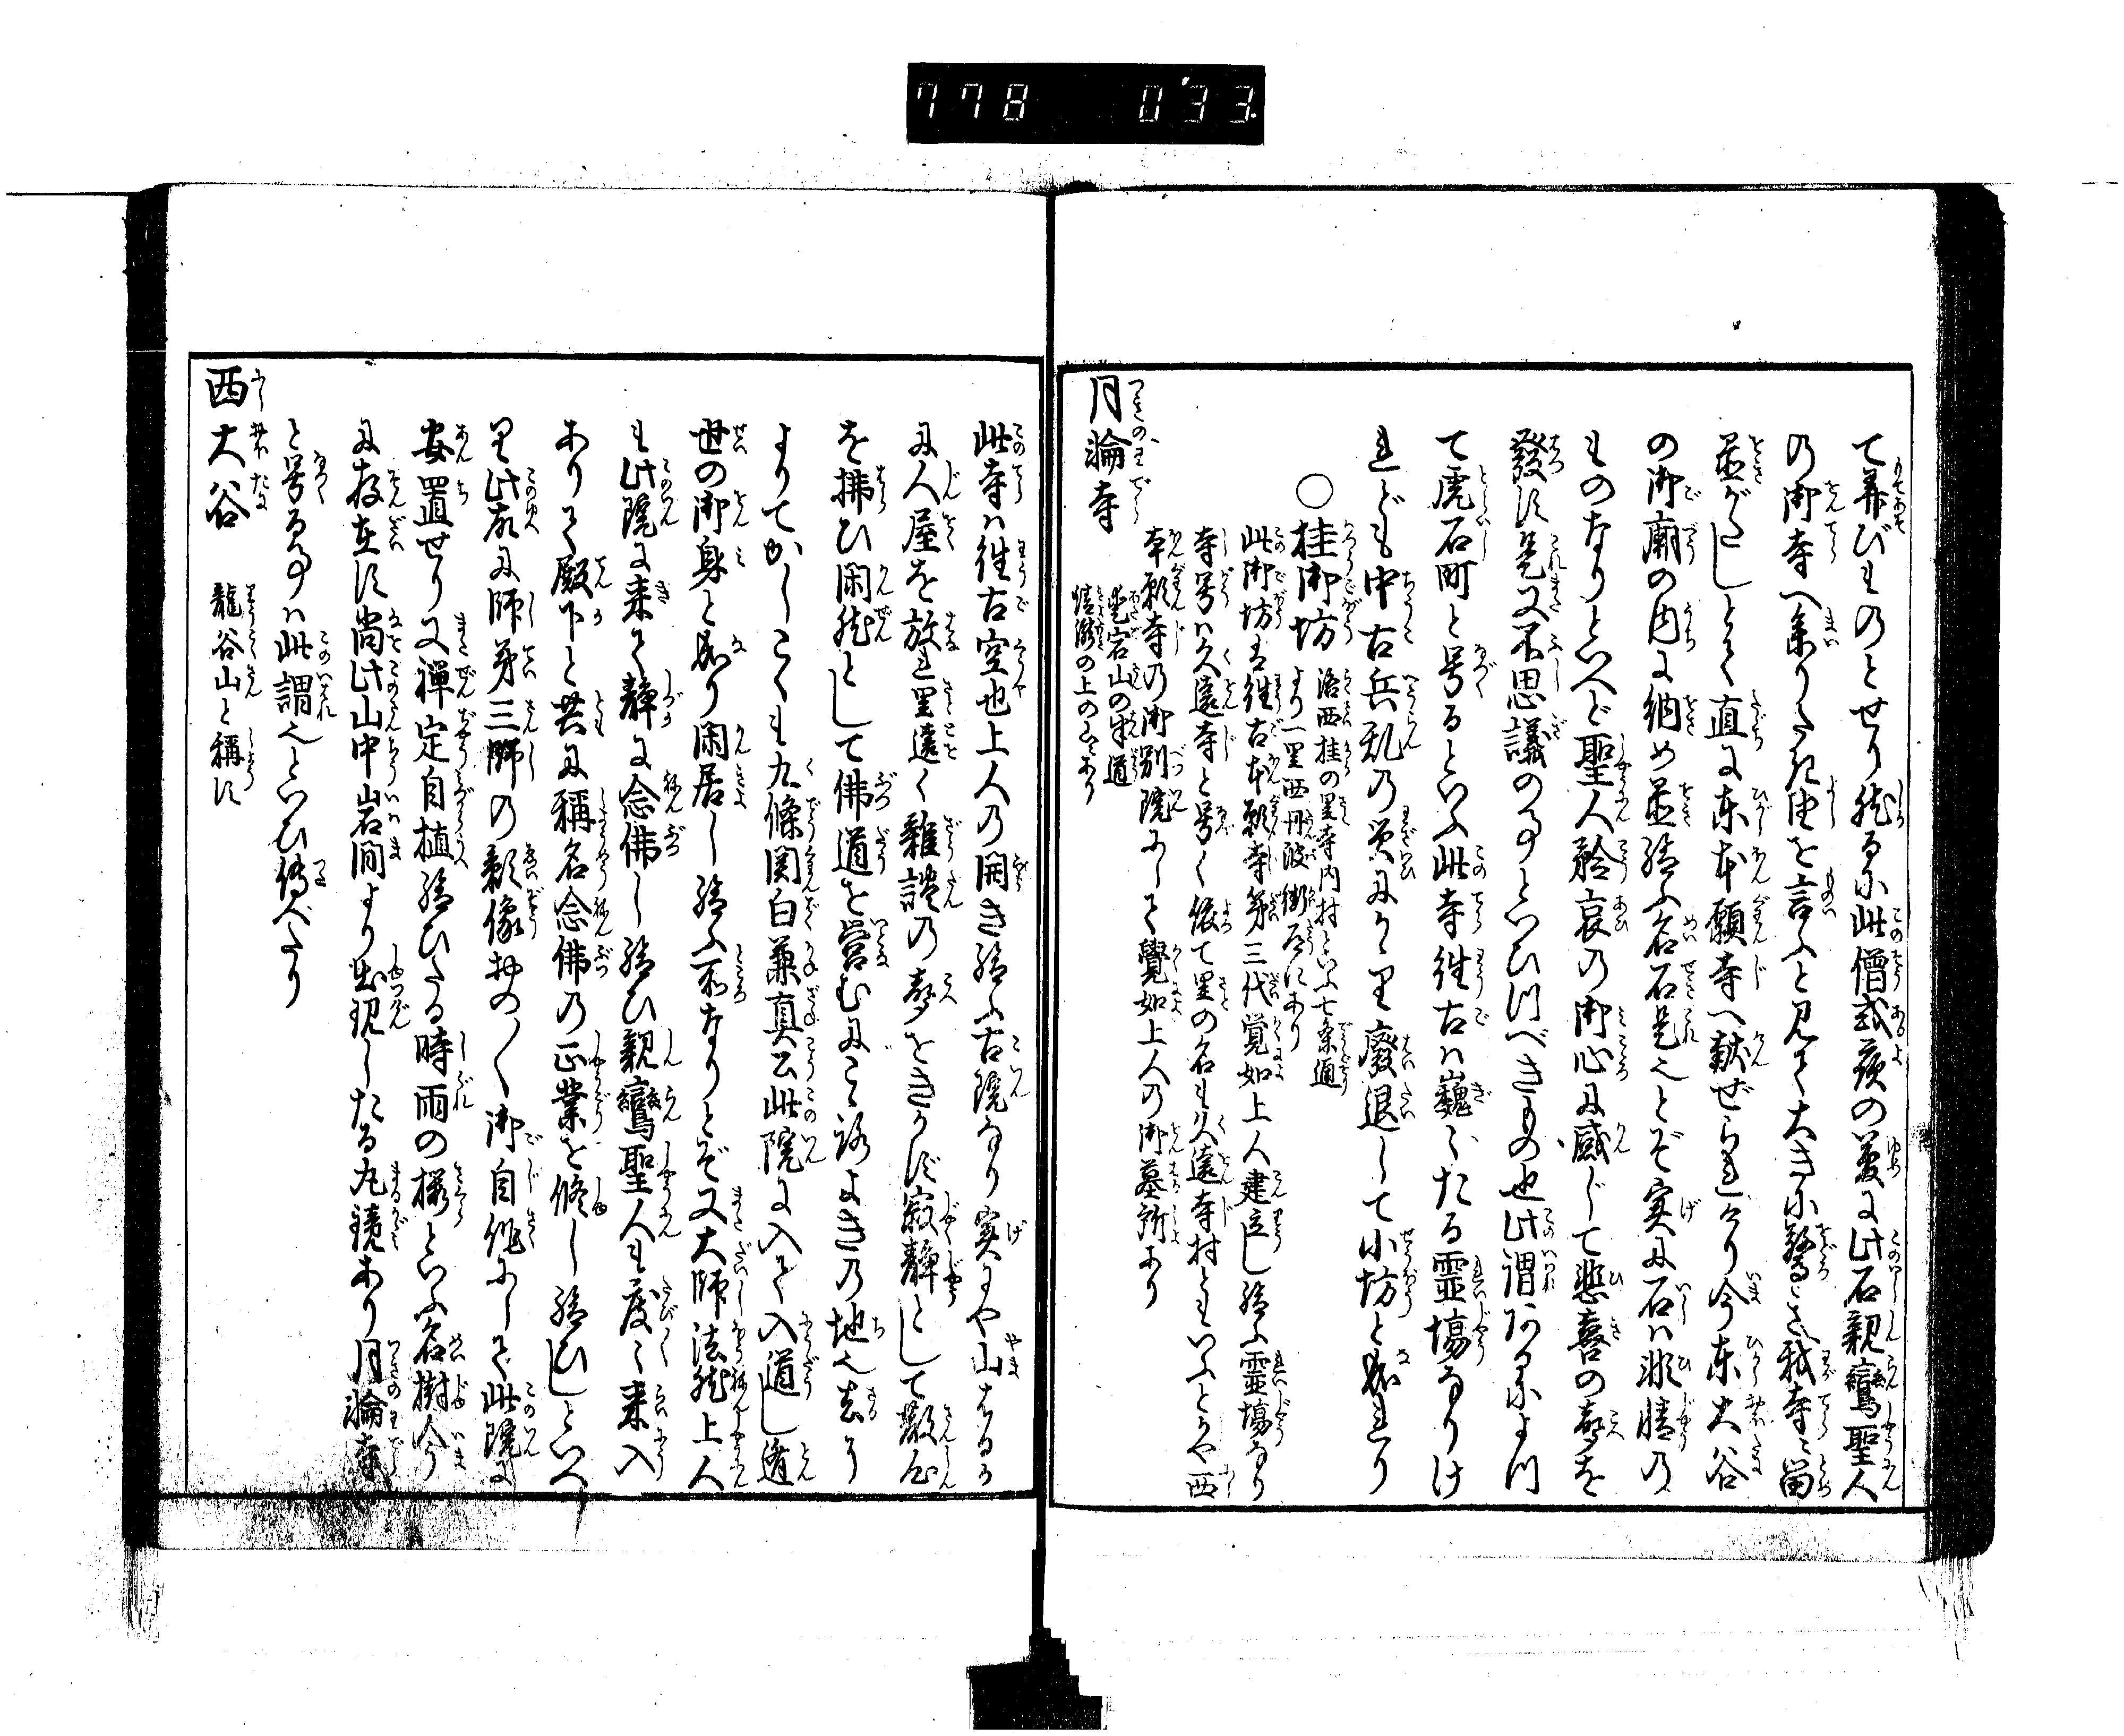 778 033
て弄びものとせり然るに此僧或夜の夢に此石親鸞聖人
の御寺へ参りたき由を言ふと見て大きに驚き我寺に留
置がたしとて直に東本願寺へ献ぜられけり今東大谷
の御廟の内に納め置給ふ名石是也とぞ実に石は非情の
ものなりといへど聖人矜哀の御心に感じて悲喜の声を
發す是又不思議の事といひつべきもの也此謂あるによつ
て虎石町と号るといふ此寺往古は巍々たる霊場なりけ
れども中古兵乱の災にかゝり廢退して小坊と成れり
○桂御坊 洛西桂の里寺内村といふ七条通
より一里西丹波街道にあり
此御坊は往古本願寺第三代覚如上人建立し給ふ霊場なり
寺号は久遠寺と号く依て里の名も久遠寺村ともいふとかや西
本願寺の御別院にして覺如上人の御墓所あり
月輪寺 愛宕山の半道
清瀧の上の山にあり
此寺は往古空也上人の開き給ふ古院なり実にや山はるか
に人屋を放れ里遠く雜談の声をきかず寂静として散乱
を拂ひ閑然として佛道を営むにこゝろよきの地也去り
よりてかしこくも九條関白兼真公此院に入て入道し遁
世の御身と成り閑居し給ふ所なりとぞ又大師法然上人
も此院に来て静に念佛し給ひ親鸞聖人も度々来入
ありて殿下と共に稱名念佛の正業を修し給ひしといへ
り此故に師弟三師の影像おの〱御自作にして此院に
安置せり又禅定自植給ひたる時雨の桜といふ名樹今
に存在す尚此山中岩間より出現したる丸鏡あり月輪寺
と号る事は此謂也といひ傳へたり
西大谷 龍谷山と稱す